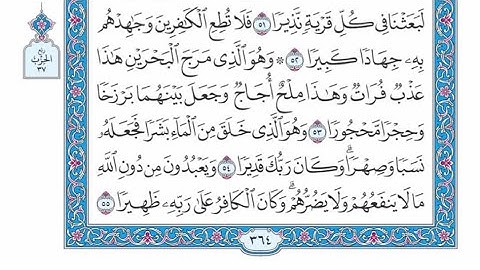 لَبَعَثْنَا فِي كُلِّ قَرْيَةٍ نَّذِيرًا ٥١ فَلَا تُطِعِ ٱلْكَٰفِرِينَ وَجَٰهِدْهُم
بِهِۦ جِهَادًا كَبِيرًا ٥٢ ۞ وَهُوَ ٱلَّذِي مَرَجَ ٱلْبَحْرَيْنِ هَٰذَا
عَذْبٌ فُرَاتٌ وَهَٰذَا مِلْحٌ أُجَاجٌ وَجَعَلَ بَيْنَهُمَا بَرْزَخًا
وَحِجْرًا مَّحْجُورًا ٥٣ وَهُوَ ٱلَّذِي خَلَقَ مِنَ ٱلْمَآءِ بَشَرًا فَجَعَلَهُۥ
نَسَبًا وَصِهْرًا ۗ وَكَانَ رَبُّكَ قَدِيرًا ٥٤ وَيَعْبُدُونَ مِن دُونِ ٱللَّهِ
مَا لَا يَنفَعُهُمْ وَلَا يَضُرُّهُمْ ۗ وَكَانَ ٱلْكَافِرُ عَلَىٰ رَبِّهِۦ ظَهِيرًا ٥٥
ربع
الحزب
٣٧
٣٦٤